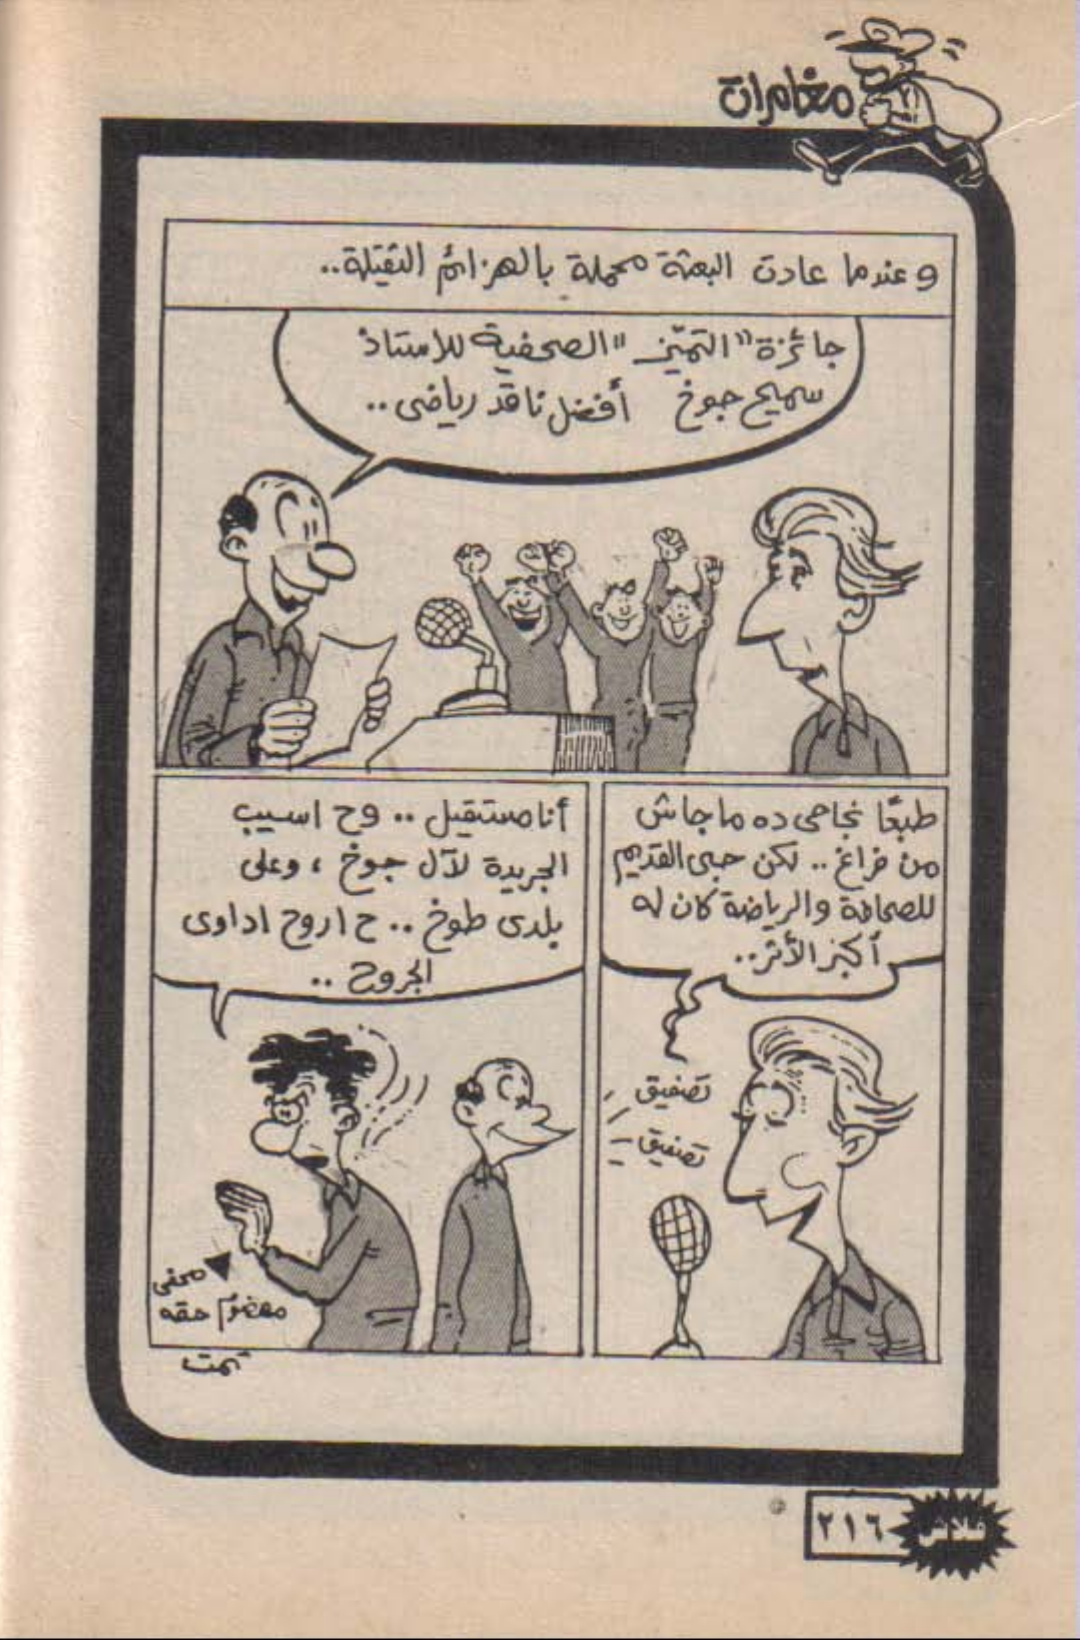 مغامرات
وعندما عادت البعثة محملة بالهزائم الثقيلة..
جائزة "التميّز" الصحفية للأستاذ
سميح جوخ أفضل ناقد رياضى..
طبعًا نجاحى ده ماجاش
من فراغ.. لكن حبى القديم
للصحافة والرياضة كان له
أكبر الأثر..
تصفيق
تصفيق
أنا مستقيل.. وح اسيب
الجريدة لآل جوخ، وعلى
بلدى طوخ.. ح اروح اداوى
الجروح..
صحفى
مهضوم حقه
تمت
فلاش
٢١٦